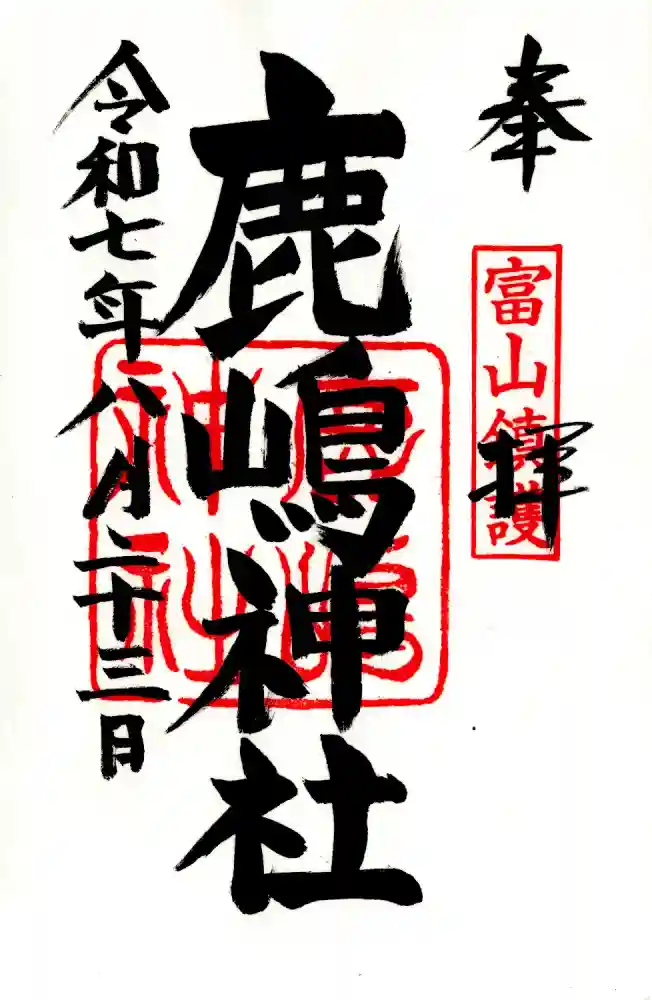 奉拝
富山鎮護
鹿嶋神社
鹿嶋神社
令和七年八月二十三日